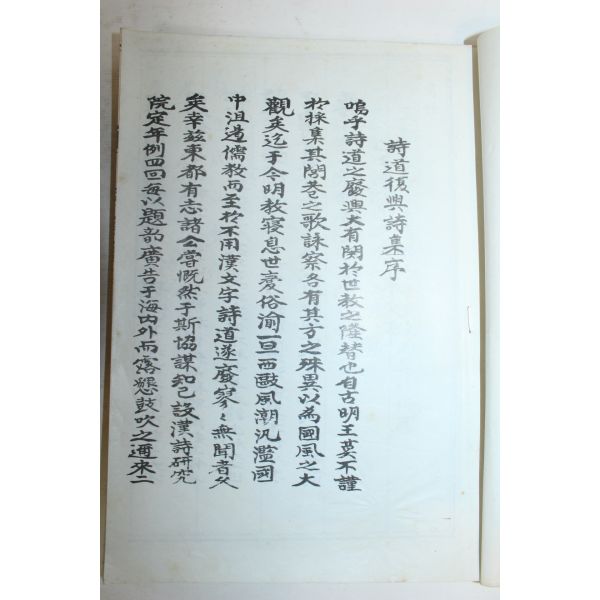 詩道復興詩集序
嗚乎詩道之廢興大有関於世教之隆替也自古明王莫不謹
於採集其閭巷之歌詠察各有其方之殊異以為國風之大
觀矣迄于今明教寢息世憂俗渝一旦西歐風潮汎濫國
中沮遏儒教而至於不用漢文字詩道遂廢寥〻無聞者久
矣幸玆東都有志諸公嘗慨然于斯協謀知己設漢詩研究
院定年例四回每以題韵廣告于海内外而露懇鼓吹之邇來二